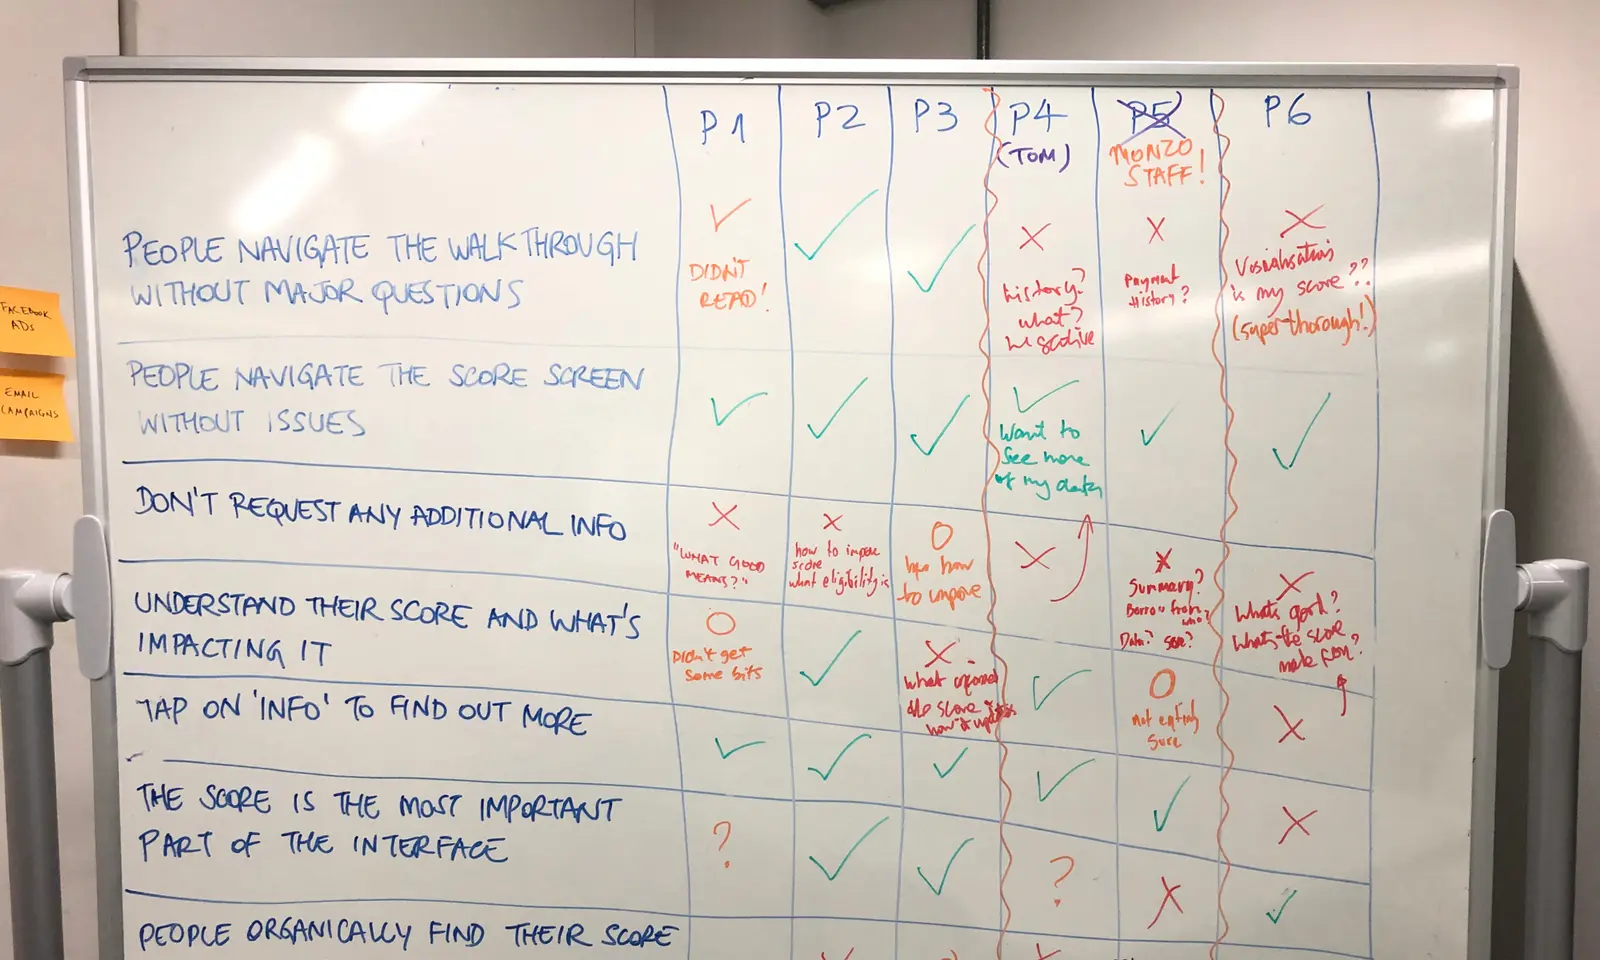 P1
P2
P3
P4
(TOM)
P5
MONZO
STAFF!
P6
PEOPLE NAVIGATE THE WALKTHROUGH
WITHOUT MAJOR QUESTIONS
DIDN'T
READ!
history?
what?
Payment
History?
Visualisation
is my score??
(super thorough!)
FACEBOOK
ADs
EMAIL
CAMPAIGNS
PEOPLE NAVIGATE THE SCORE SCREEN
WITHOUT ISSUES
Want to
see more
of my data
DON'T REQUEST ANY ADDITIONAL INFO
"WHAT GOOD
MEANS?"
how to improve
score
what eligibility is
how
to improve
Summary?
Borrow from
who?
Data?
What's good?
What's the score
made from?
UNDERSTAND THEIR SCORE AND WHAT'S
IMPACTING IT
Didn't get
some bits
what
the score
how it
not entirely
sure
TAP ON 'INFO' TO FIND OUT MORE
THE SCORE IS THE MOST IMPORTANT
PART OF THE INTERFACE
?
?
PEOPLE ORGANICALLY FIND THEIR SCORE